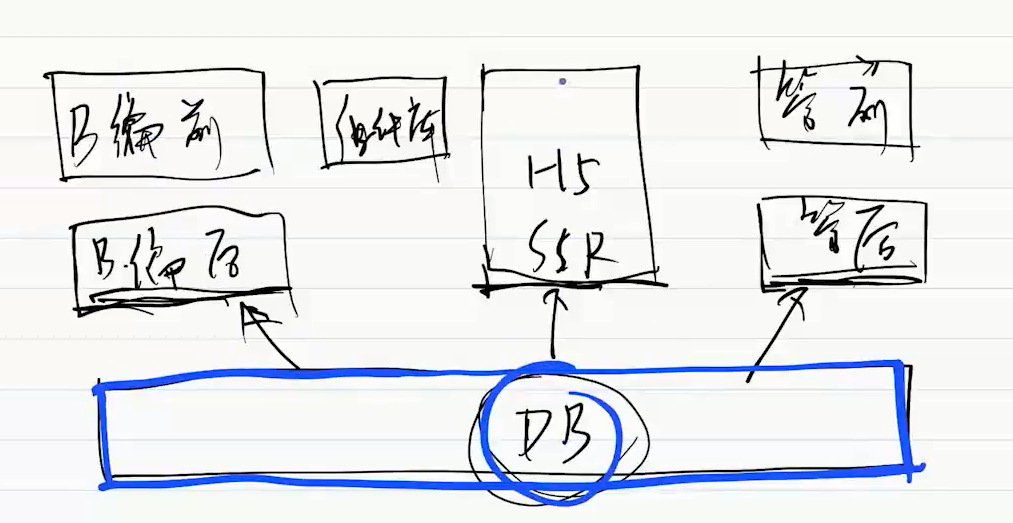 B编前
组件库
H5
SSR
管前
B编后
管后
DB